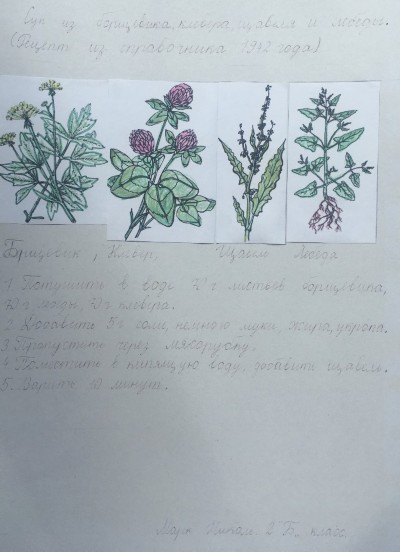 Суп из борщевика, клевера, щавеля и лебеды.
(Рецепт из справочника 1942 года)
Борщевик, Клевер, Щавель
1. Потушить в воде листьев борщевика,
клевера.
2. Добавить 5 г соли, немного муки, жира, укропа.
3. Пропустить через мясорубку.
4. Поместить в кипящую воду, добавить щавель.
5. Варить 10 минут.
2 Б класс